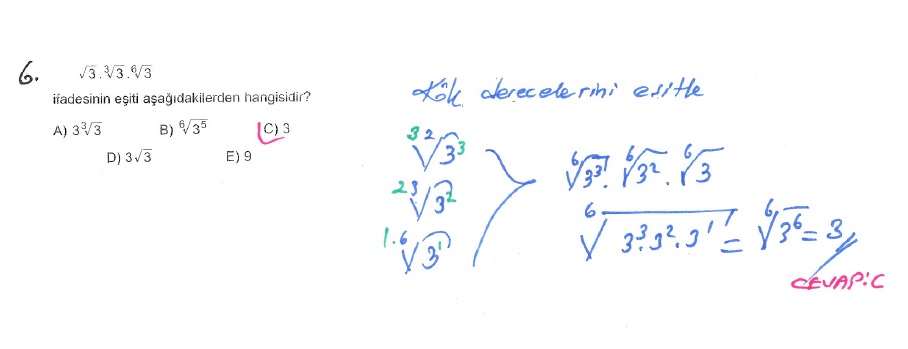 6. √3.∛3.⁶√3
ifadesinin eşiti aşağıdakilerden hangisidir?
A) 3∛3 B) ⁶√3⁵ C) 3
D) 3√3 E) 9
Kök derecelerini eşitle
3 2√3³
2 3√3²
1.6√3¹
⁶√3³.⁶√3².⁶√3
⁶√3³.3².3¹ = ⁶√3⁶ = 3
CEVAP:C